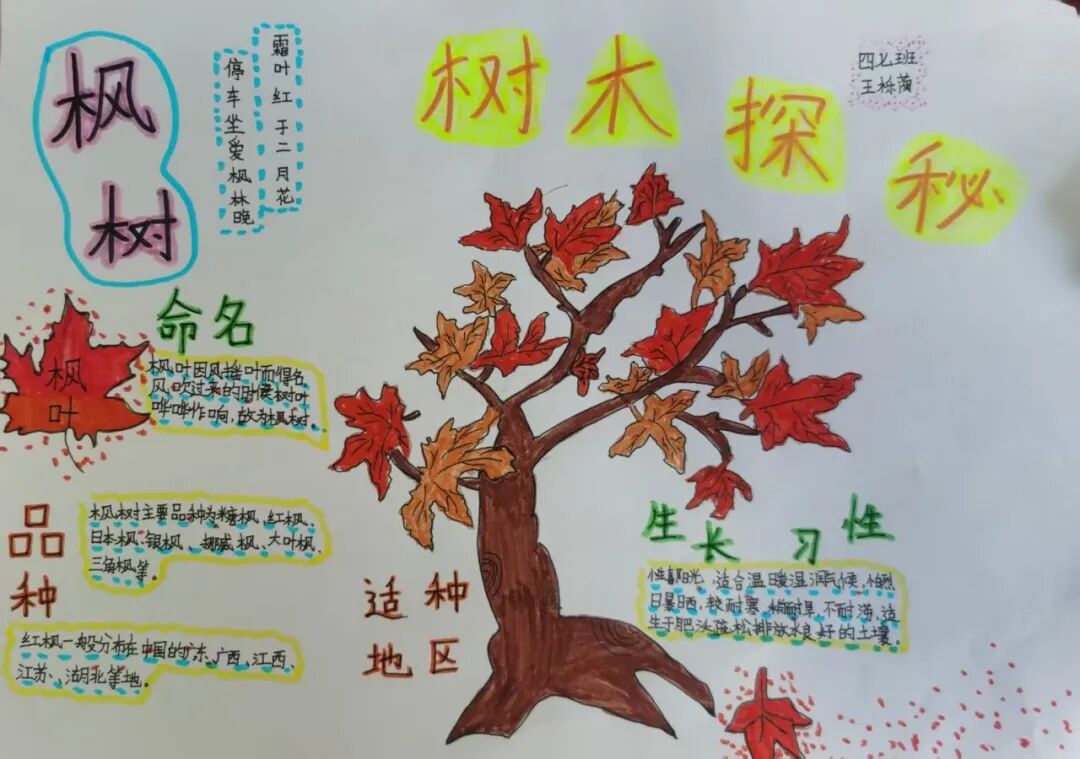 枫树
霜叶红于二月花
停车坐爱枫林晚
树木探秘
四七班
王栎
命名
枫叶
枫叶因风摇叶而得名
风吹过来的时候树叶
哗哗作响,故为枫树。
品种
枫树主要品种为糖枫、红枫、
日本枫、银枫、挪威枫、大叶枫、
三角枫等。
红枫一般分布在中国的广东、广西、江西、
江苏、湖北等地。
适种
地区
生长习性
性喜阳光,适合温暖湿润气候,怕烈
日暴晒,较耐寒,稍耐旱,不耐涝,适
生于肥沃疏松排放水良好的土壤。